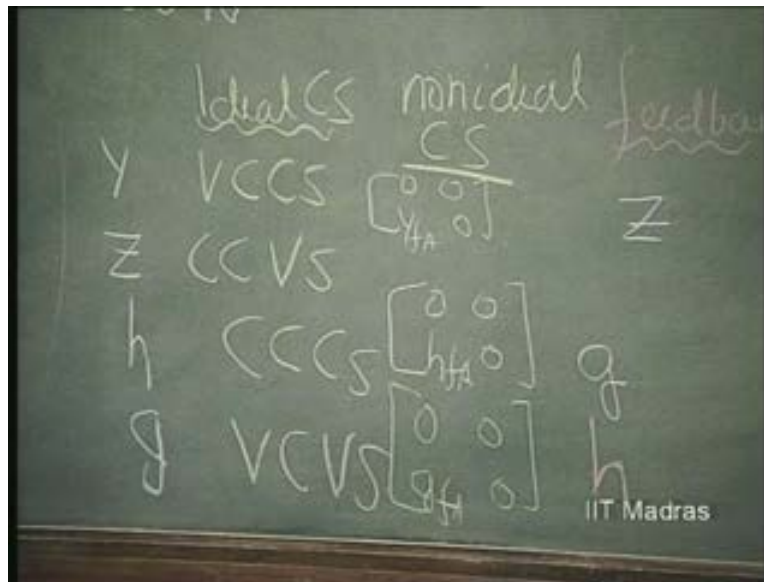 Ideal CS nonideal CS feedba
Y VCCS [0 0 yfA 0] Z
Z CCVS
h CCCS [0 0 hfA 0] g
g VCVS [0 0 gfA 0] h
IIT Madras